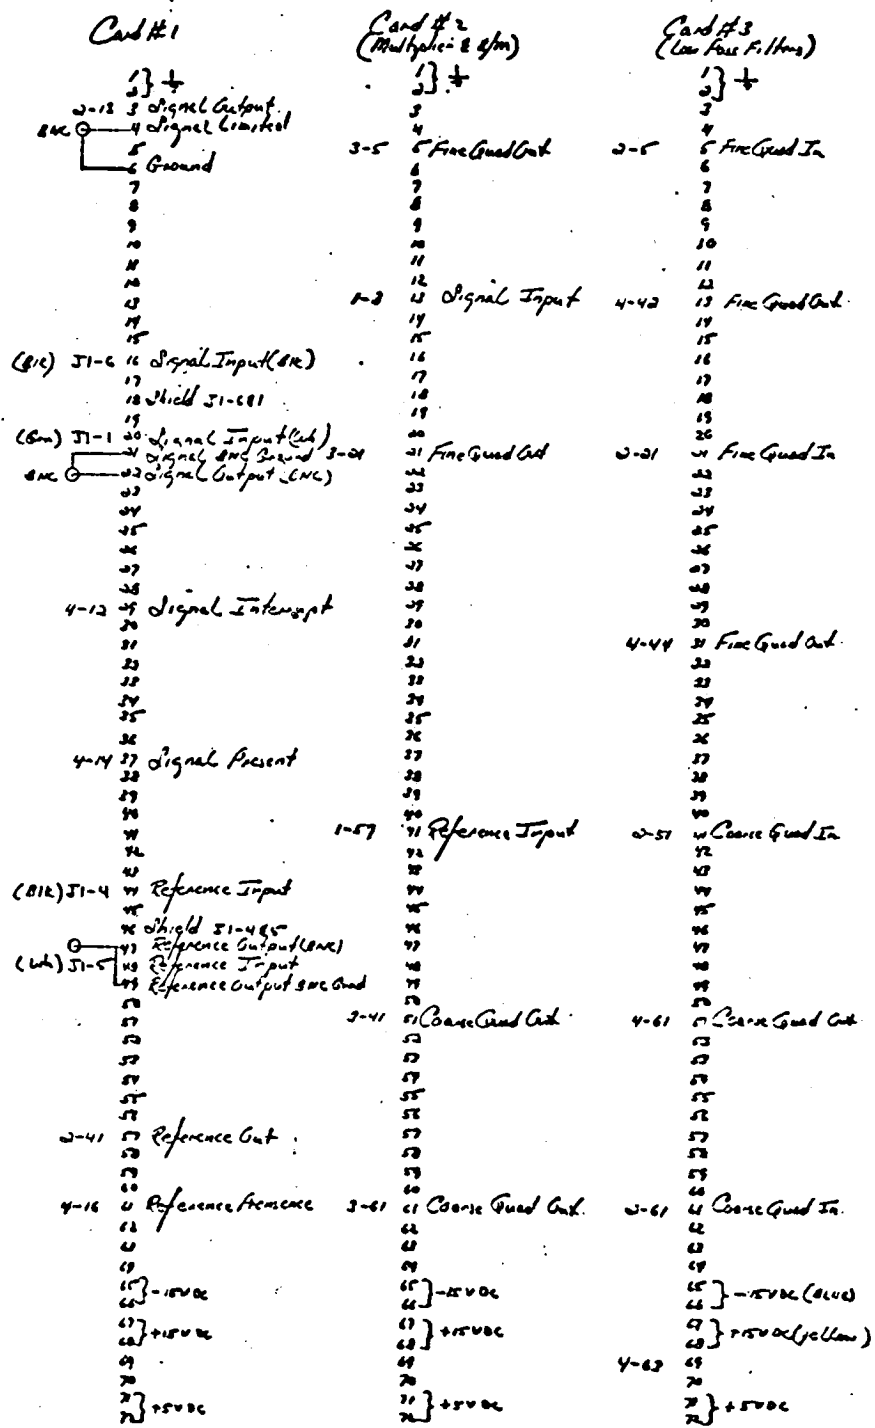 Card #1
1
2
2-13 3 Signal Output
BNC 4 Signal Limited
5
6 Ground
7
8
9
10
11
12
13
14
15
(Blk) J1-6 16 Signal Input (Blk)
17
18 Shield J1-6&1
19
J1-1 20 Signal Input (Wh)
21 Signal BNC Ground
BNC 22 Signal Output (BNC)
23
24
25
26
27
28
4-12 29 Signal Interrupt
30
31
32
33
34
35
36
4-14 37 Signal Present
38
39
40
41
42
43
(Blk) J1-4 44 Reference Input
45
46 Shield J1-4&5
47 Reference Output (BNC)
(Wh) J1-5 48 Reference Input
49 Reference Output BNC Gnd
50
51
52
53
54
55
56
2-41 57 Reference Out
58
59
60
4-16 61 Reference Presence
62
63
64
65
66 } -15VDC
67
68 } +15VDC
69
70
71
72 } +5VDC
Card #2
(Multiplier & S/m)
1
2
3
4
3-5 5 Fine Quad Out
6
7
8
9
10
11
12
1-3 13 Signal Input
14
15
16
17
18
19
20
3-21 21 Fine Quad Out
22
23
24
25
26
27
28
29
30
31
32
33
34
35
36
37
38
39
40
1-57 41 Reference Input
42
43
44
45
46
47
48
49
50
3-41 51 Coarse Quad Out
52
53
54
55
56
57
58
59
60
3-61 61 Coarse Quad Out
62
63
64
65
66 } -15VDC
67
68 } +15VDC
69
70
71
72 } +5VDC
Card #3
(Low Pass Filters)
1
2
3
4
2-5 5 Fine Quad In
6
7
8
9
10
11
12
4-42 13 Fine Quad Out
14
15
16
17
18
19
20
2-21 21 Fine Quad In
22
23
24
25
26
27
28
29
30
4-44 31 Fine Quad Out
32
33
34
35
36
37
38
39
40
2-51 41 Coarse Quad In
42
43
44
45
46
47
48
49
50
4-61 51 Coarse Quad Out
52
53
54
55
56
57
58
59
60
2-61 61 Coarse Quad In
62
63
64
65
66 } -15VDC (Blue)
67
68 } +15VDC (yellow)
4-63 69
70
71
72 } +5VDC